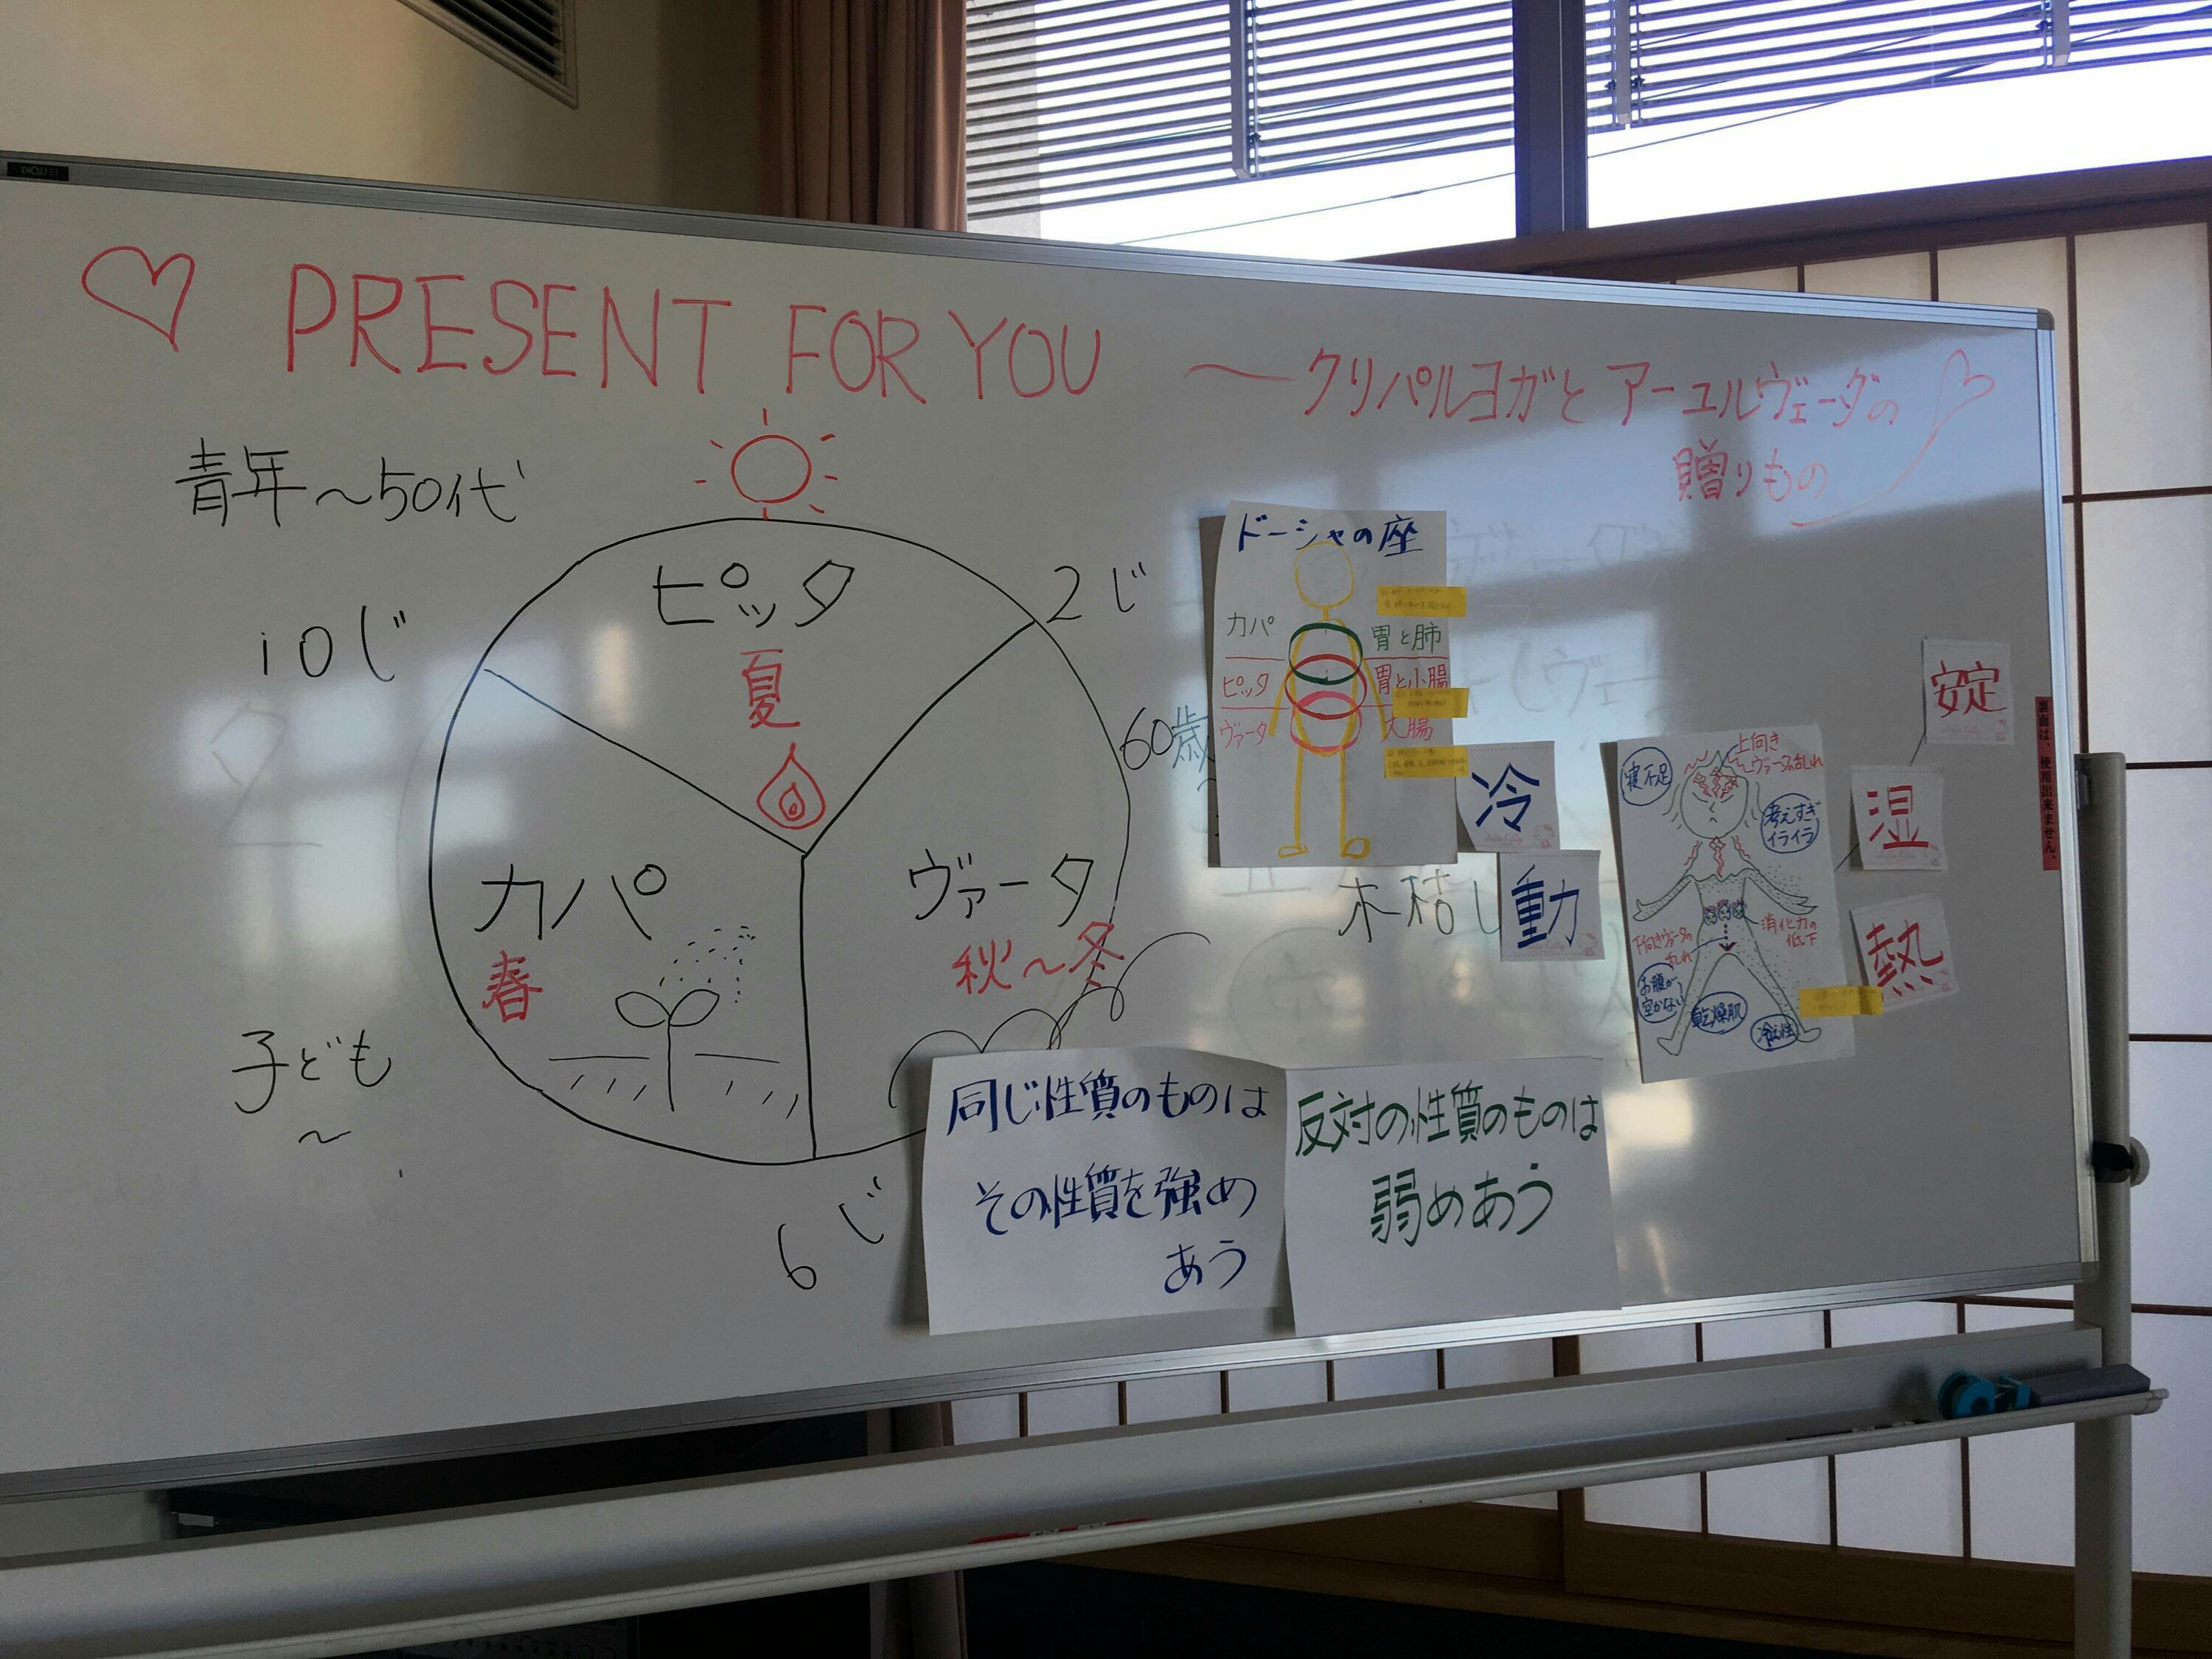 PRESENT FOR YOU
〜クリパルヨガと アーユルヴェーダの
贈りもの
青年〜50代
10じ
2じ
ピッタ
夏
60歳
カパ
春
ヴァータ
秋〜冬
木枯し
子ども
〜
6じ
ドーシャの座
カパ
胃と肺
ピッタ
胃と小腸
ヴァータ
大腸
冷
動
寝不足
上向き
ヴァータの乱れ
考えすぎ
イライラ
消化力の
低下
下向きヴァータの
乱れ
お腹が
空かない
乾燥肌
冷え性
安定
湿
熱
同じ性質のものは
その性質を強め
あう
反対の性質のものは
弱めあう
裏面は、使用出来ません。